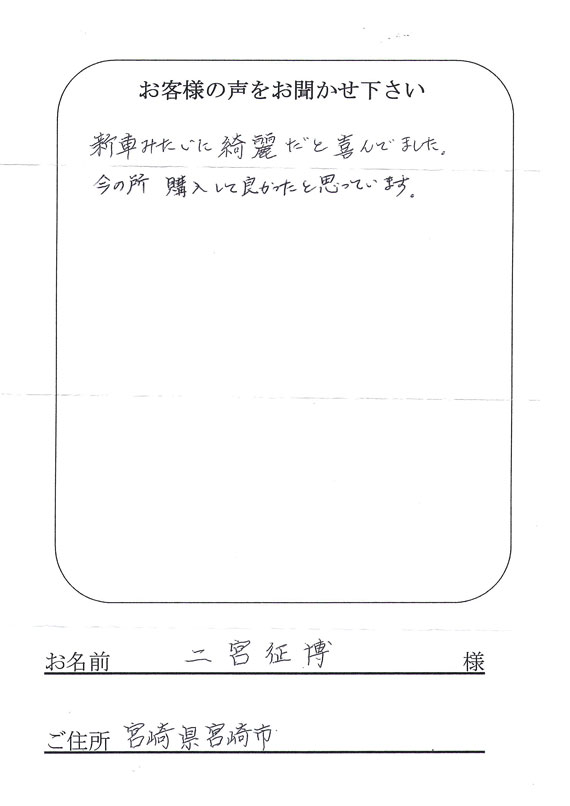 お客様の声をお聞かせ下さい
新車みたいに綺麗だと喜んでました。
今の所 購入して良かったと思っています。
お名前 二宮征博 様
ご住所 宮崎県宮崎市